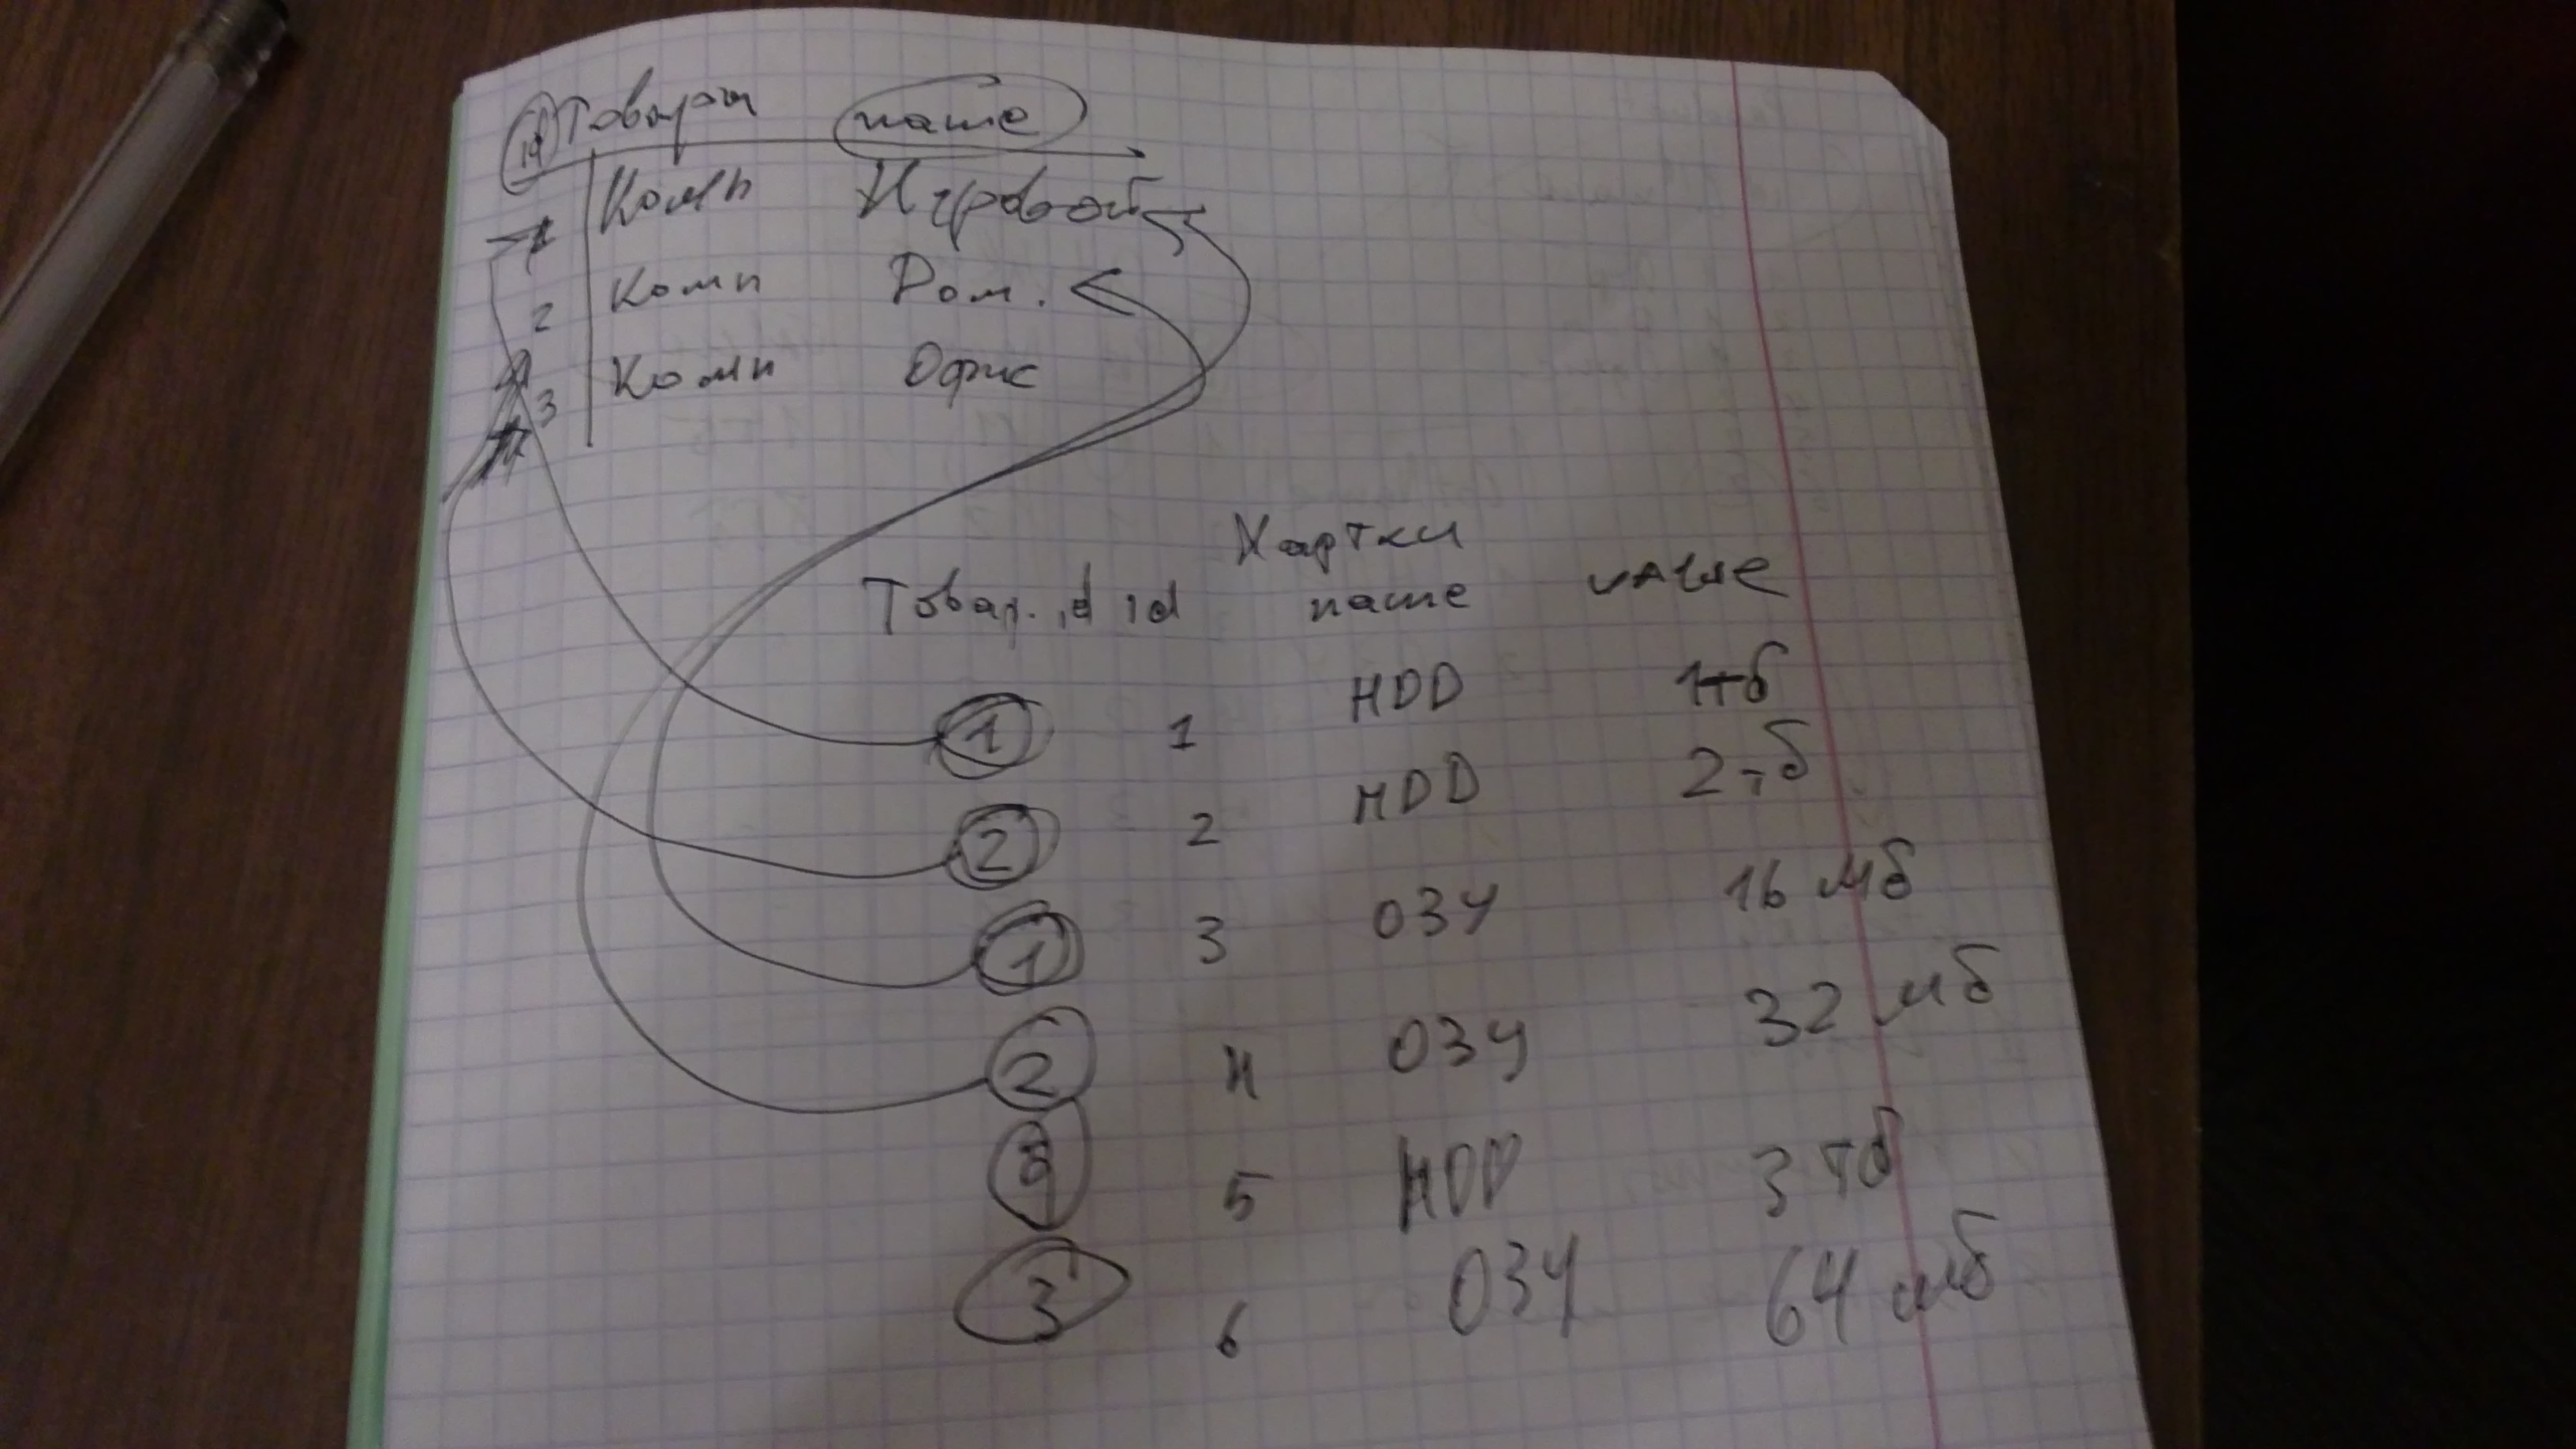 id Товары name
1 Комп Игровой
2 Комп Дом.
3 Комп Офис
Хартки
Товар. id id name value
1 1 HDD 1тб
2 2 HDD 2тб
1 3 ОЗУ 16 мб
2 4 ОЗУ 32 мб
3 5 HDD 3 тб
3 6 ОЗУ 64 мб